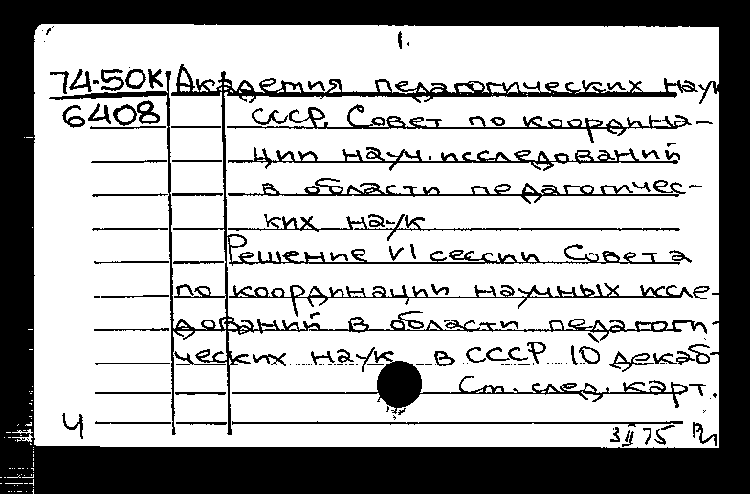 1.
74-50К Академия педагогических наук
6408 СССР. Совет по координа-
ции науч. исследований
в области педагогичес-
ких наук
Решение VI сессии Совета
по координации научных иссле-
дований в области педагоги-
ческих наук в СССР 10 декаб-
Ст. след. карт.
Ч
3 II 75